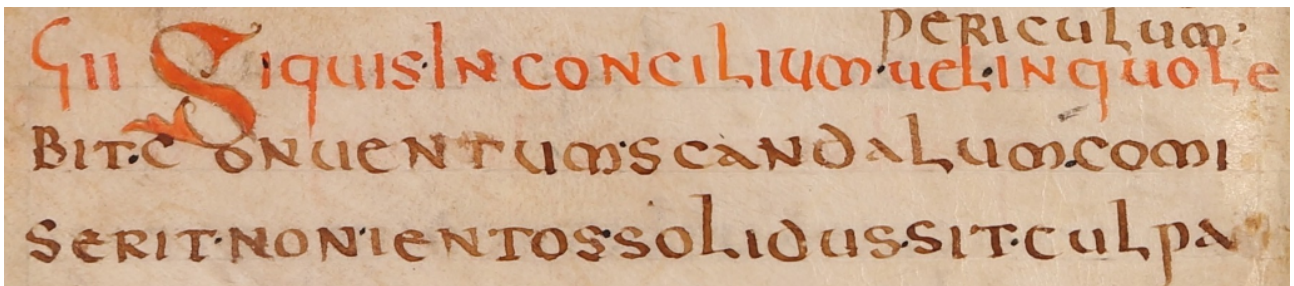 periculum·
ϛII Siquis·In concilium·uel·in quole
bit·conuentum·scandalum·comi
serit·non·ientos·solidus·sit·culpa